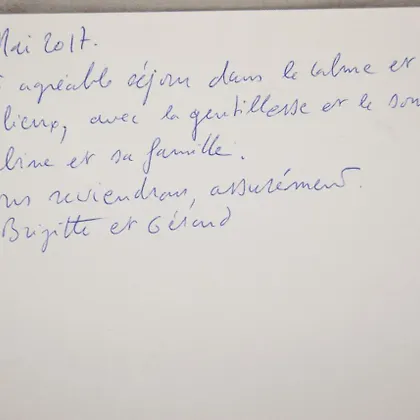 Mai 2017.
agréable séjour dans le calme et
lieux, avec la gentillesse et le sou
line et sa famille.
ous reviendrons, assurément.
Brigitte et Gérard